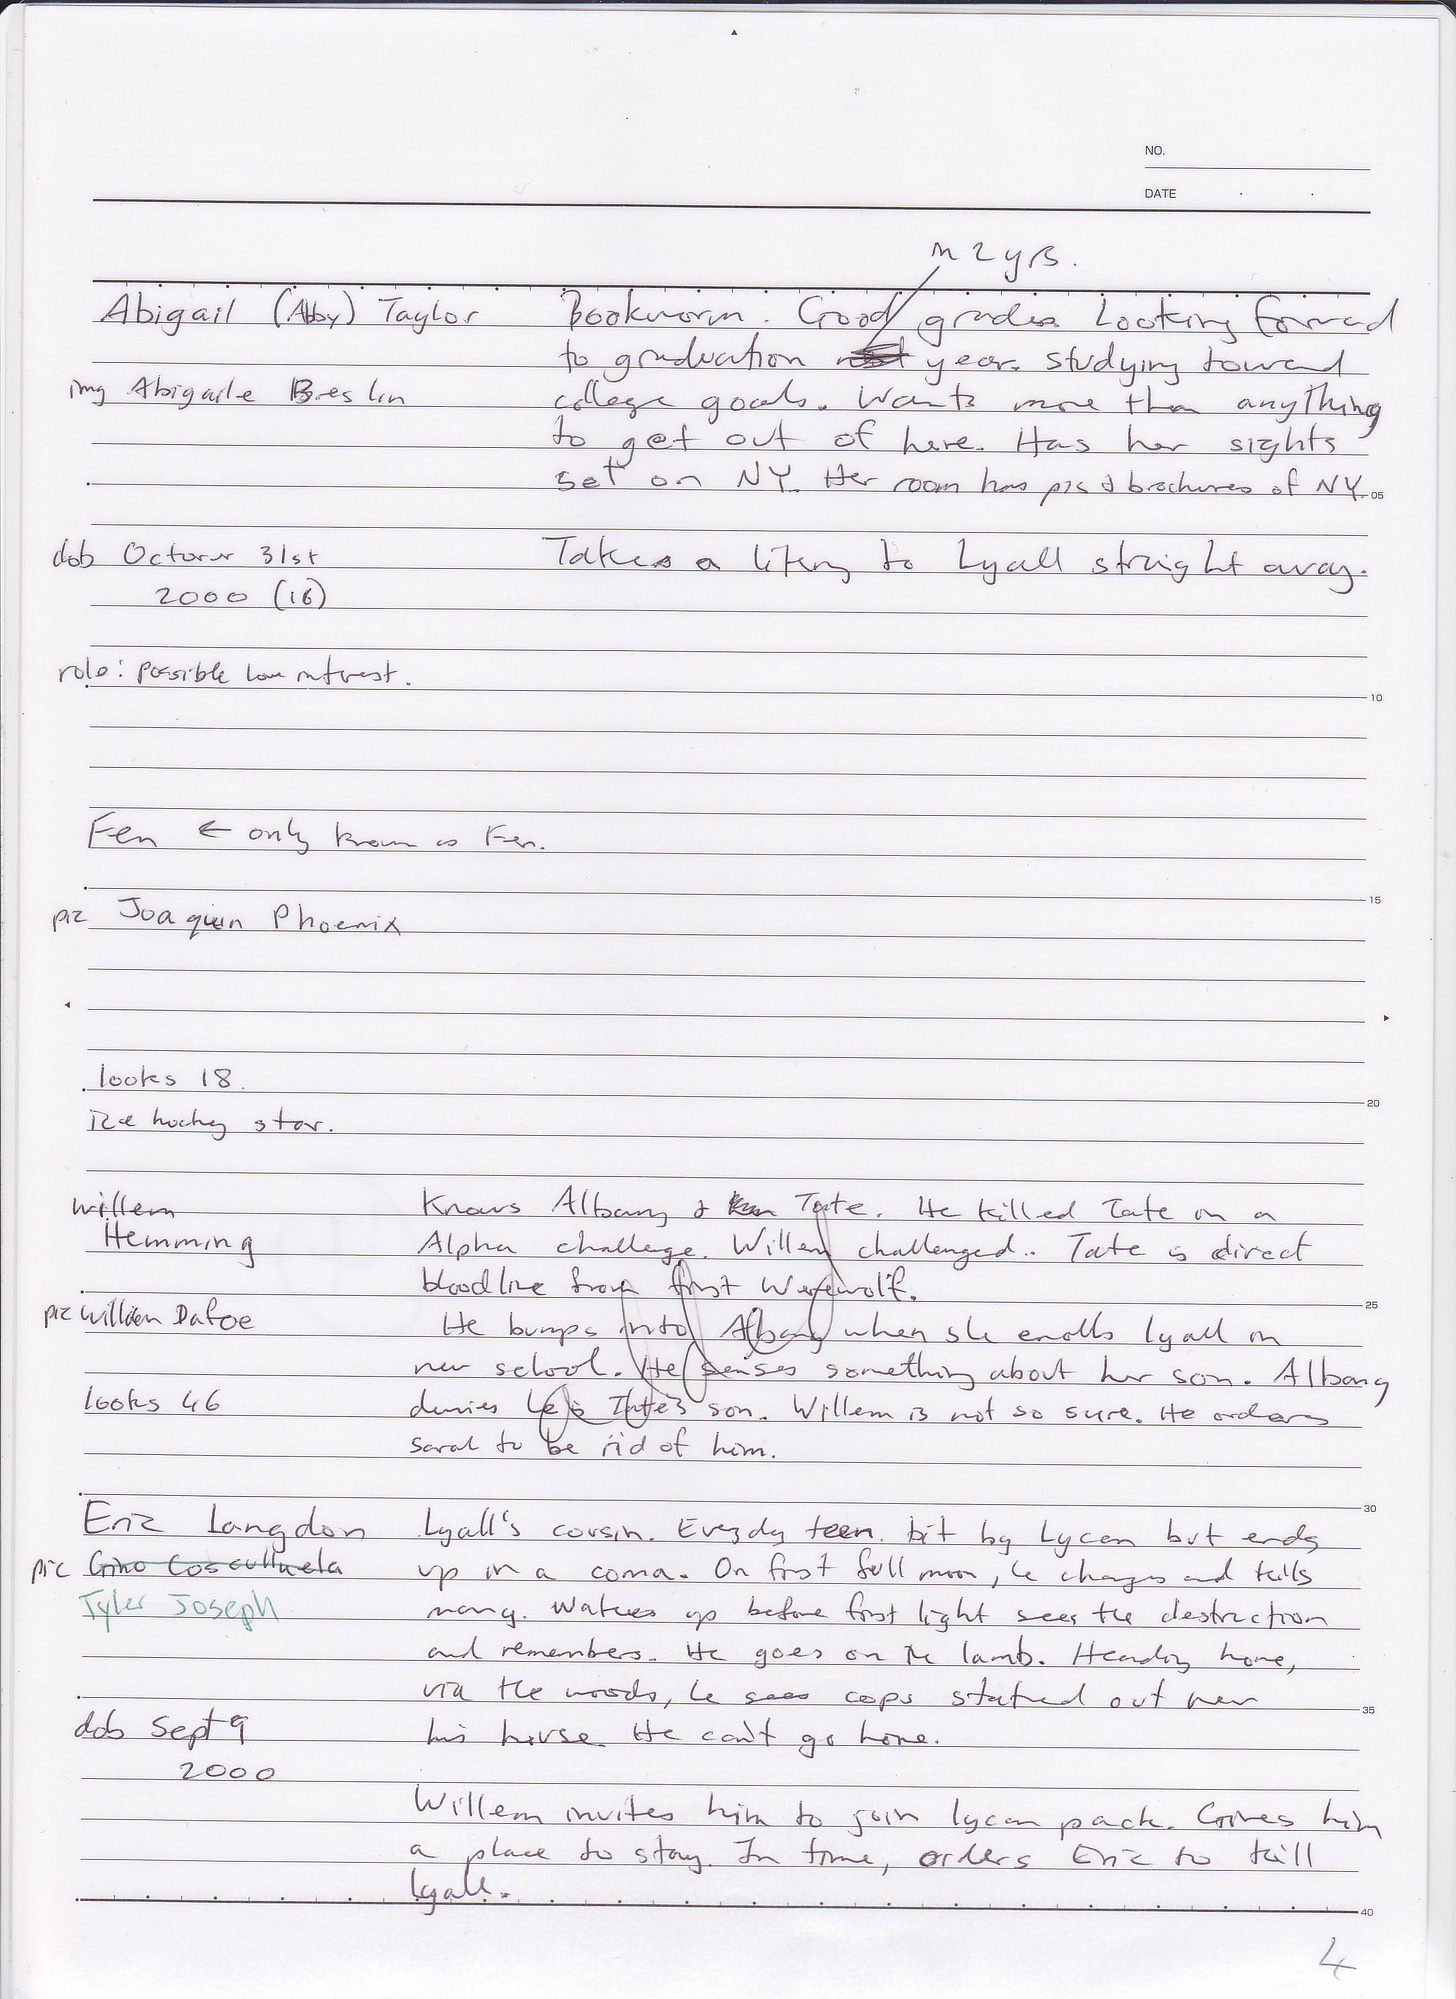 NO.
DATE
in 2 yrs.
Abigail (Abby) Taylor Bookworm. Good grades. Looking forward
to graduation next year. Studying toward
img Abigaile Breslin college goals. Wants more than anything
to get out of here. Has her sights
set on NY. Her room has pics & brochures of NY. 05
dob October 31st Takes a liking to Lyall straight away.
2000 (16)
role: possible love interest.
10
Fen ← only known as Fen.
15
pic Joaquin Phoenix
looks 18.
20
Ice hockey star.
Willem Knows Albany & Tate. He killed Tate in a
Hemming Alpha challenge. Willem challenged.. Tate is direct
bloodline from first Werewolf.
25
pic Willem Dafoe He bumps into Albany when she enrolls Lyall in
new school. He senses something about her son. Albany
looks 46 denies he is Tate's son. Willem is not so sure. He orders
Saral to be rid of him.
30
Eric Langdon Lyall's cousin. Everyday teen. bit by Lycan but ends
pic Gino Cosculluela up in a coma. On first full moon, he changes and kills
Tyler Joseph many. Wakes up before first light sees the destruction
and remembers. He goes on the lamb. Heading home,
via the woods, he sees cops staked out near
35
dob Sept 9 his house. He can't go home.
2000
Willem invites him to join lycan pack. Gives him
a place to stay. In time, orders Eric to kill
Lyall.
40
4